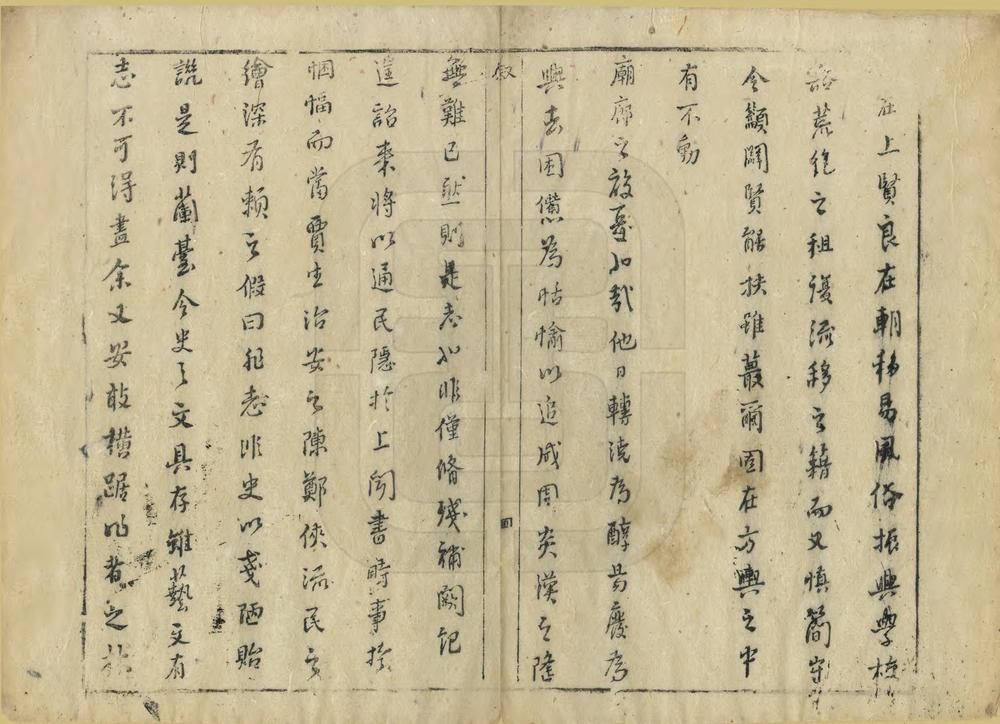 在上賢良在朝移易風俗振興學校
豁荒絶之租復流移之籍而又慎簡守
令顓闢賢能扶雖蕞爾固在方輿之中
有不動
廟廊之殷憂也哉他日轉澆為醇易廢為
興去困憊為恬愉以追咸周炎漢之隆
無難已然則是志也非僅脩殘補闕記
遑詒來將以通民隱於上聞書時事於
悃愊而當賈生治安之陳鄭俠流民之
繪深有賴之假曰非志非史以戔陋貽
譏是則蘭臺令史之文具存雖藝文有
志不可得盡余又安敢橫踞作者之
叙
四